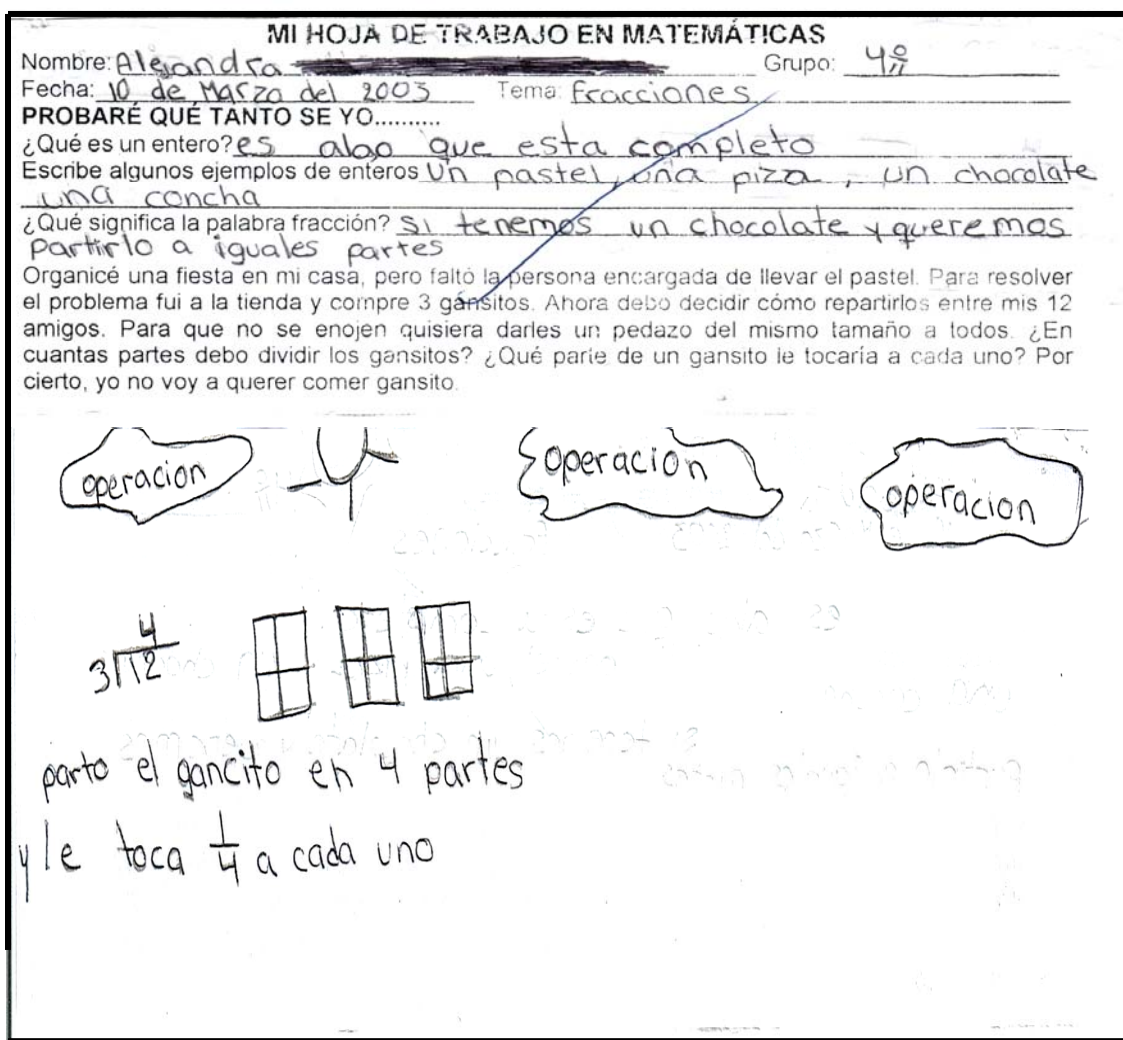 MI HOJA DE TRABAJO EN MATEMÁTICAS
Nombre: Alejandra Grupo: 4º
Fecha: 10 de Marzo del 2003 Tema: Fracciones
PROBARÉ QUÉ TANTO SE YO..........
¿Qué es un entero? es algo que esta completo
Escribe algunos ejemplos de enteros Un pastel, una piza, un chocolate
una concha
¿Qué significa la palabra fracción? Si tenemos un chocolate y queremos
partirlo a iguales partes
Organicé una fiesta en mi casa, pero faltó la persona encargada de llevar el pastel. Para resolver
el problema fui a la tienda y compre 3 gansitos. Ahora debo decidir cómo repartirlos entre mis 12
amigos. Para que no se enojen quisiera darles un pedazo del mismo tamaño a todos. ¿En
cuantas partes debo dividir los gansitos? ¿Qué parte de un gansito le tocaría a cada uno? Por
cierto, yo no voy a querer comer gansito.
operacion operacion operacion
4
3 12
parto el gancito en 4 partes
y le toca 1/4 a cada uno